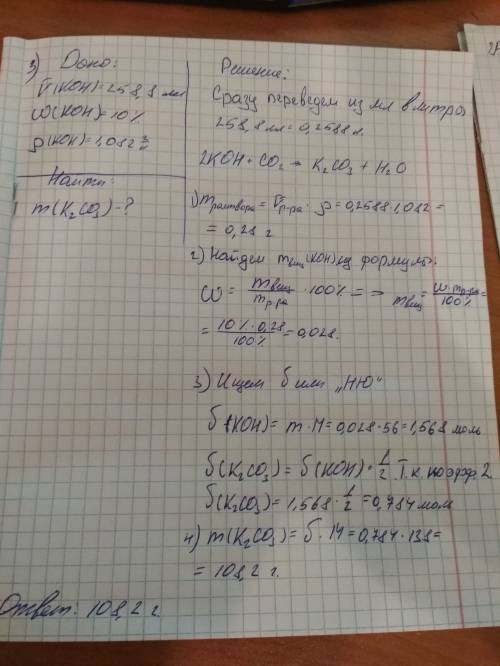 3) Дано:
V(KOH)=258,8 мл
ω(KOH)=10%
ρ(KOH)=1,082 г/л
Найти:
m(K₂CO₃)-?
Решение:
Сразу переведем из мл в литры
258,8 мл = 0,2588 л.
2KOH + CO₂ → K₂CO₃ + H₂O
1) m раствора = Vр-ра · ρ = 0,2588 · 1,082 =
= 0,28 г
2) Найдем mвещ (KOH) из формулы:
ω = mвещ/mр-ра · 100% = ⇒ mвещ = ω·mр-ра/100% =
= 10%·0,28/100% = 0,028.
3) Ищем б или „НЮ"
б (KOH) = m · M = 0,028 · 56 = 1,568 моль
б(K₂CO₃) = б(KOH) · 1/2. Т.к. коэфф. 2
б(K₂CO₃) = 1,568 · 1/2 = 0,784 моль
4) m(K₂CO₃) = б · M = 0,784 · 138 =
= 108,2 г.
Ответ: 108,2 г.